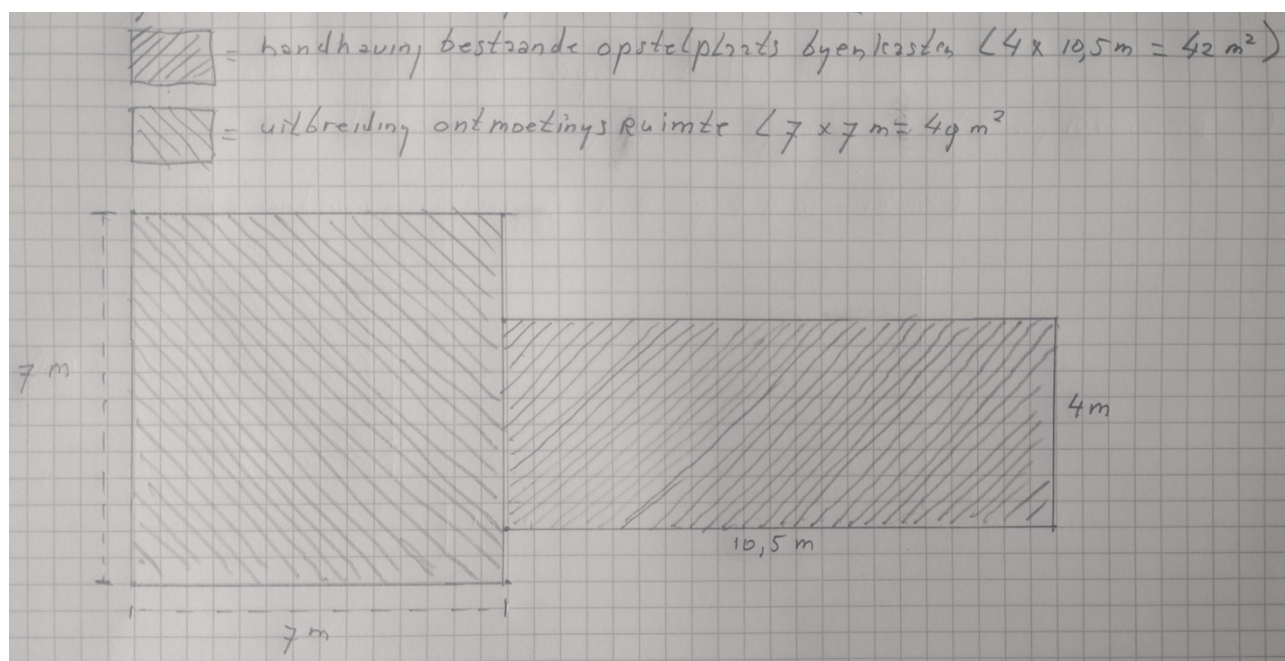 = handhaving bestaande opstelplaats byenkasten (4 x 10,5 m = 42 m²)
= uitbreiding ontmoetings Ruimte (7 x 7 m = 49 m²
7 m
4 m
10,5 m
7 m